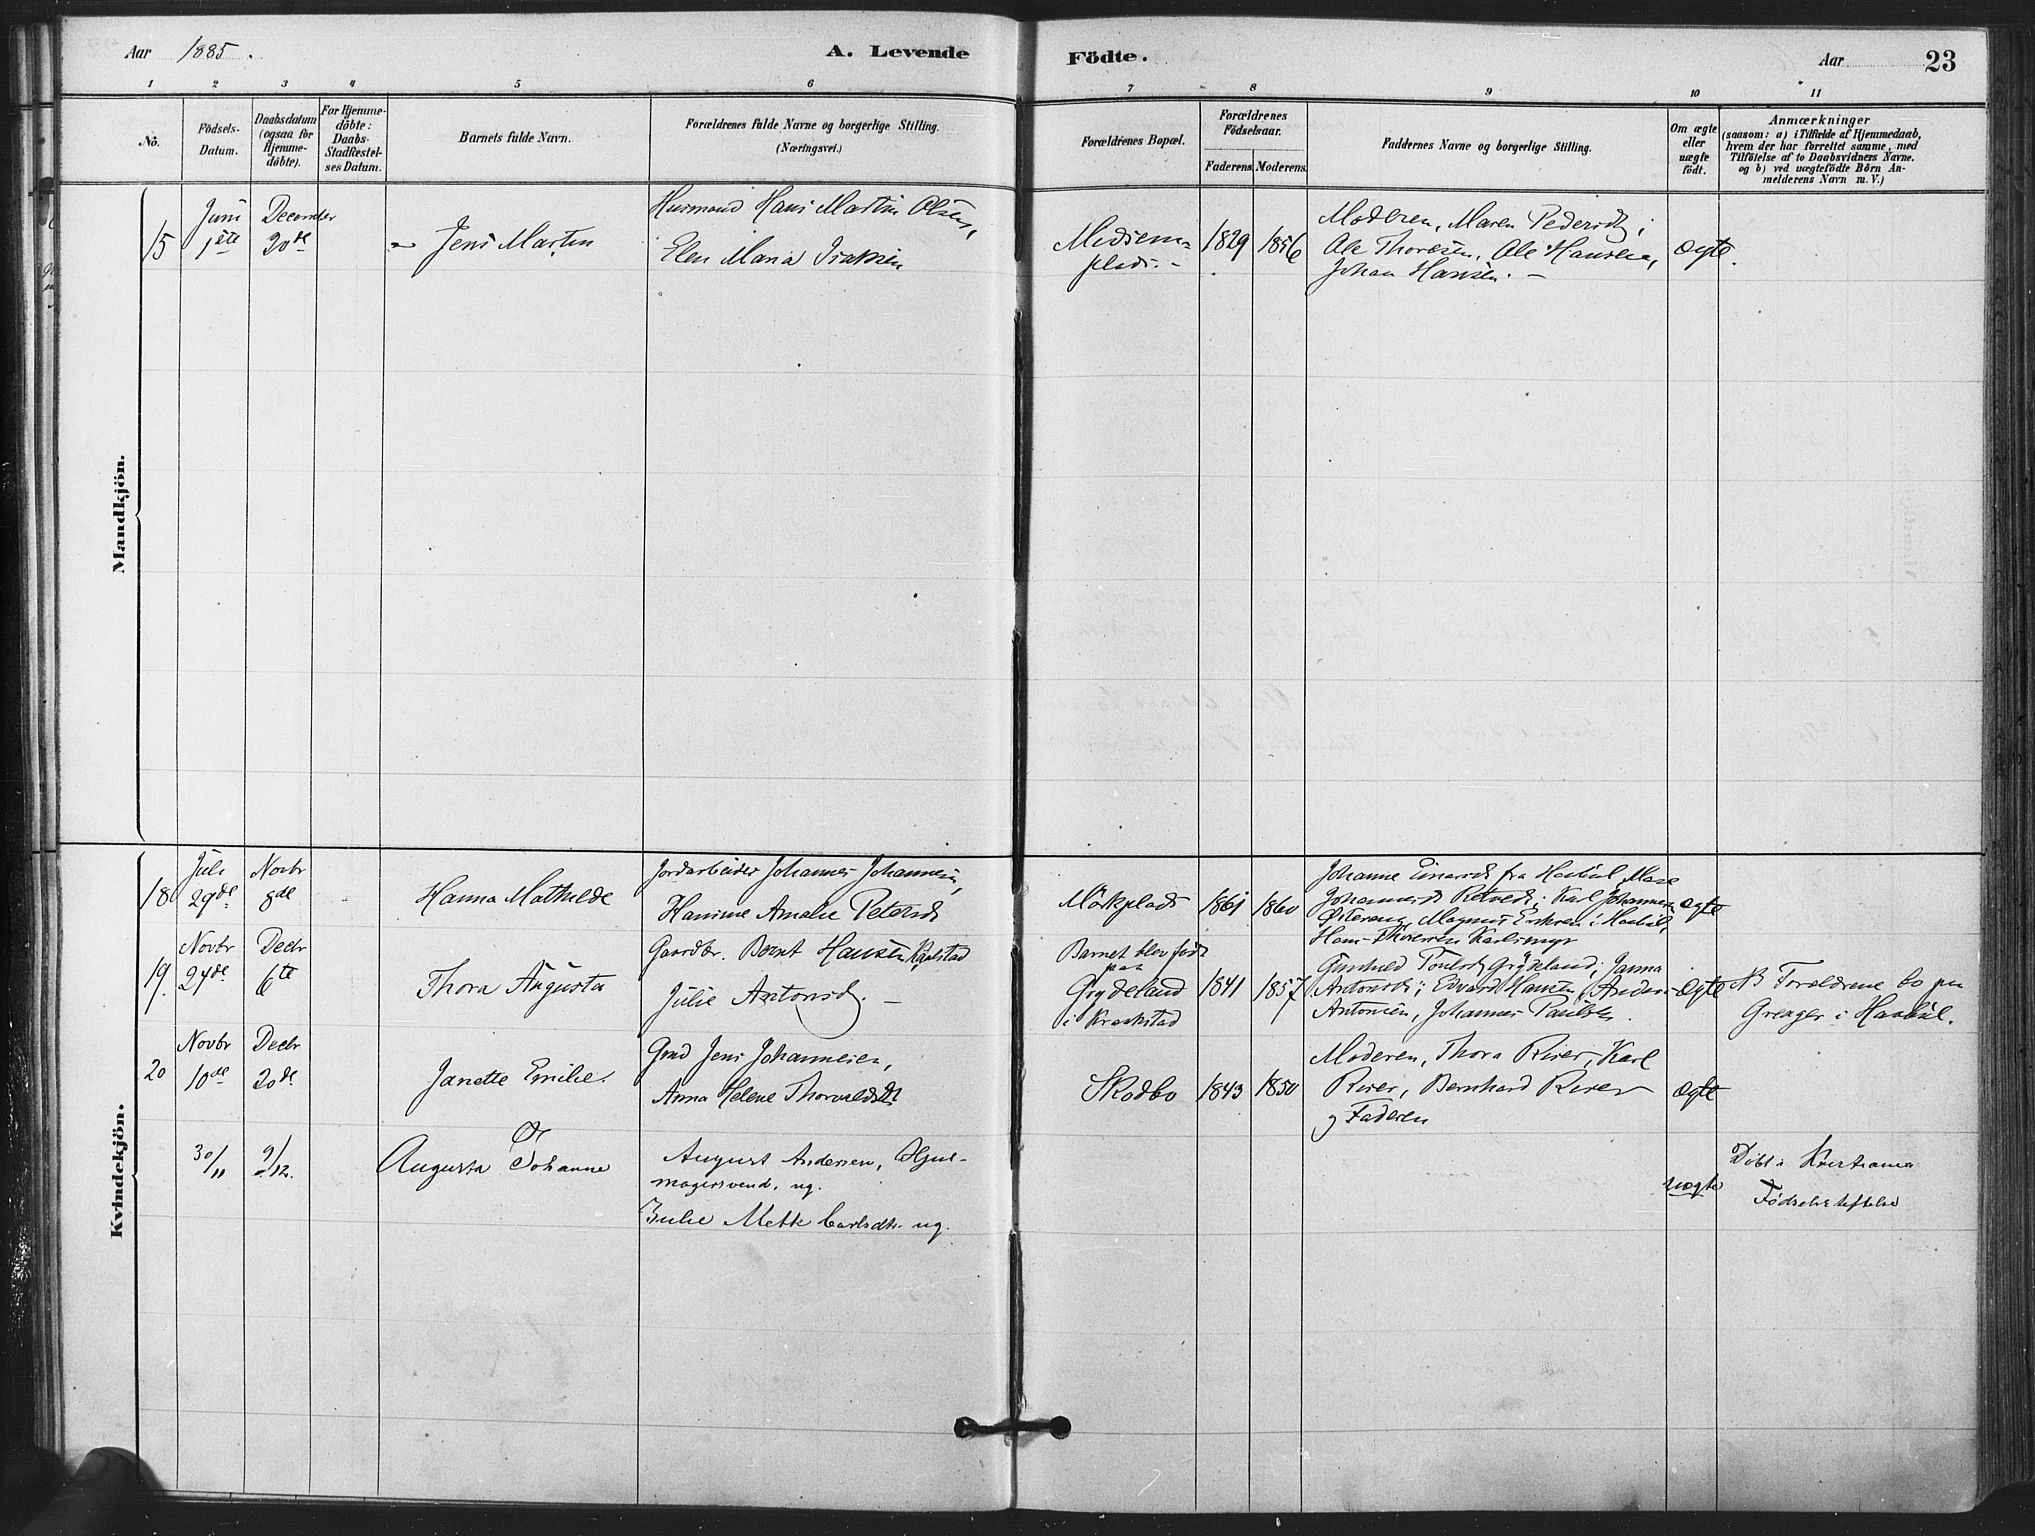 Aar 1885.
A. Levende Födte.
Aar
23
1 2 3 4 5 6 7 8 9 10 11
No.
Födsels-Datum.
Daabsdatum (ogsaa for Hjemme-döbte).
For Hjemme-döbte: Daabs-Stadfæstel-ses Datum.
Barnets fulde Navn.
Forældrenes fulde Navne og borgerlige Stilling.
(Næringsvei.)
Forældrenes Bopæl.
Forældrenes Födselsaar.
Faderens. Moderens.
Faddernes Navne og borgerlige Stilling.
Om ægte eller uægte födt.
Anmærkninger
(saasom: a) i Tilfælde af Hjemmedaab,
hvem der har forrettet samme, med
Tilföielse af to Daabsvidners Navne.
og b) ved uægtefödte Börn An-
melderens Navn m. V.)
Mandkjön.
15
Juni 1ste
December 20de
Jens Martin
Husmand Hans Martin Olsen,
Elen Maria Isaksen
plads.
1829
1856
Moderen, Maren Pedersdt;
Ole Thoresen, Ole Hansen,
Johan Hansen.
ægte.
Kvindekjön.
18
Juli 29de
Novbr 8de
Hanna Mathilde
Jordarbeider Johannes Johannesen,
Hanine Amalie Petersdt
Mörkplads
1861
1860
Johanne Einarsdt fra Haabøl Mare
Johannesdt Retvedt; Karl Johannesen
Østereng, Magnus Eriksen i Haabøl,
Hans Thoresen Karlsmyr
ægte
19.
Novbr 24de
Decbr 6te
Thora Augusta
Gaardbr. Bernt Hansen
Julie Antonsdt.
Barnet blev födt
paa
Grydeland
i Kraakstad
1841
1857
Gunhild Poulsdt Grydeland; Janna
Antonsdt; Edvard Hansen, Anders
Antonsen, Johannes Paulsen.
ægte
NB Forældrene bo paa
Grenger i Haabøl.
20
Novbr 10de
Decbr 20de
Janette Emilie.
Grd Jens Johannesen,
Anna Helene Thorvaldsdt
Skodbo
1843
1850
Moderen, Thora Riser, Karl
Riser, Bernhard Riser
og Faderen
ægte
30/11
9/12.
Augusta Johanne
August Andersen, Hjul-
magersvend, ug.
Julie Mette Carlsdtr. ug.
uægte
Döbt i Kristiania
Fødselsstiftelse